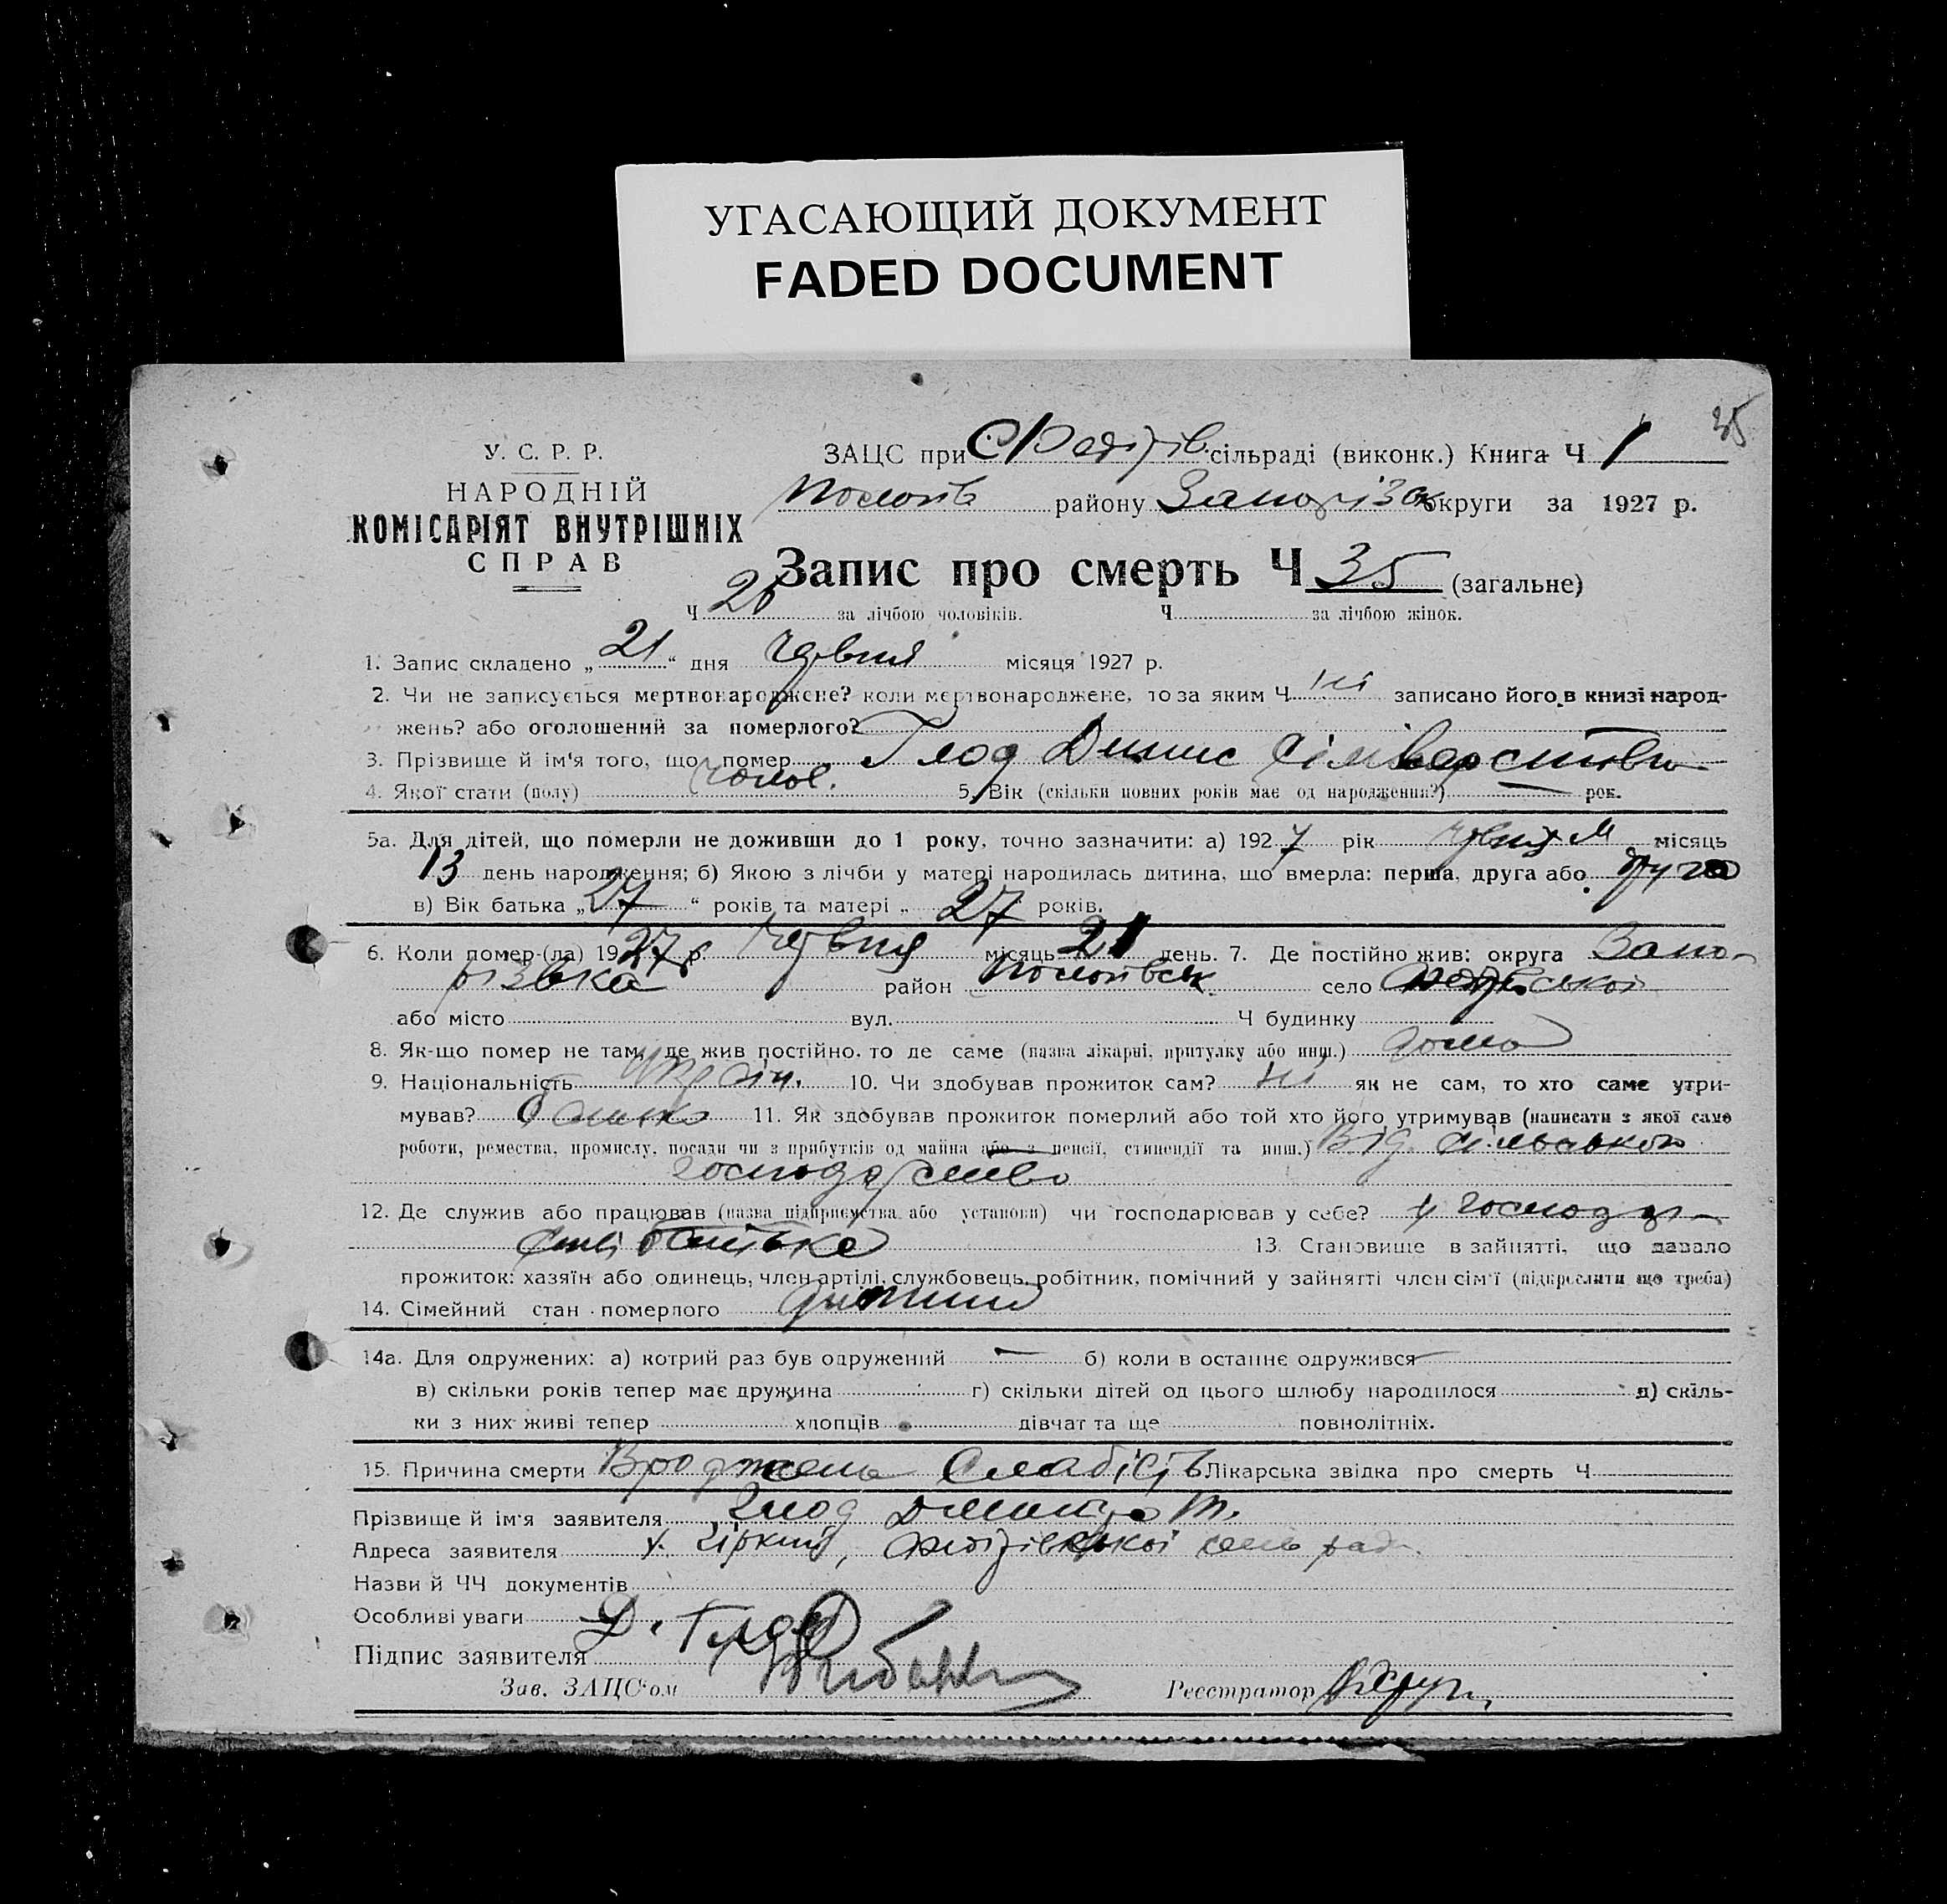 УГАСАЮЩИЙ ДОКУМЕНТ
FADED DOCUMENT
35
У. С. Р. Р.
НАРОДНІЙ
КОМІСАРІЯТ ВНУТРІШНІХ
СПРАВ
ЗАЦС при сільраді (виконк.) Книга Ч 1
району Запоріз округи за 1927 р.
Запис про смерть Ч 35 (загальне)
Ч 26 за лічбою чоловіків. Ч за лічбою жінок.
1. Запис складено „ 21 “ дня червня місяця 1927 р.
2. Чи не записується мертвонароджене? коли мертвонароджене, то за яким Ч ні записано його в книзі народ-
жень? або оголошений за померлого?
3. Прізвище й ім'я того, що помер Глод Денис
4. Якої стати (полу) чолов. 5. Вік (скільки повних років має од народження?) — рок.
5а. Для дітей, що померли не доживши до 1 року, точно зазначити: а) 1927 рік червня м місяць
13 день народження; б) Якою з лічби у матері народилась дитина, що вмерла: перша, друга або друга
в) Вік батька „ 27 “ років та матері „ 27 років.
6. Коли помер-(ла) 1927 р. червня місяць 21 день. 7. Де постійно жив: округа Запо-
різька район Пологівськ село
або місто вул. Ч будинку
8. Як-що помер не там, де жив постійно, то де саме (назва лікарні, притулку або инш.) дома
9. Національність Україн. 10. Чи здобував прожиток сам? ні як не сам, то хто саме утри-
мував? батько 11. Як здобував прожиток померлий або той хто його утримував (написати з якої саме
роботи, ремества, промислу, посади чи з прибутків од майна або з пенсії, стипендії та инш.) Від сільського
господарства
12. Де служив або працював (назва підприємства або установи) чи господарював у себе? у господар-
стві батька 13. Становище в зайнятті, що давало
прожиток: хазяїн або одинець, член артілі, службовець, робітник, помічний у зайнятті член сім'ї (підкреслити що треба)
14. Сімейний стан померлого дитина
14а. Для одружених: а) котрий раз був одружений — б) коли в останнє одружився —
в) скільки років тепер має дружина г) скільки дітей од цього шлюбу народилося д) скіль-
ки з них живі тепер хлопців дівчат та ще повнолітніх.
15. Причина смерти Вроджена слабість Лікарська звідка про смерть Ч
Прізвище й ім'я заявителя Глод Дмитро Т.
Адреса заявителя х. сель ради
Назви й ЧЧ документів
Особливі уваги
Підпис заявителя Д. Глод
Зав. ЗАЦС'ом
Реєстратор